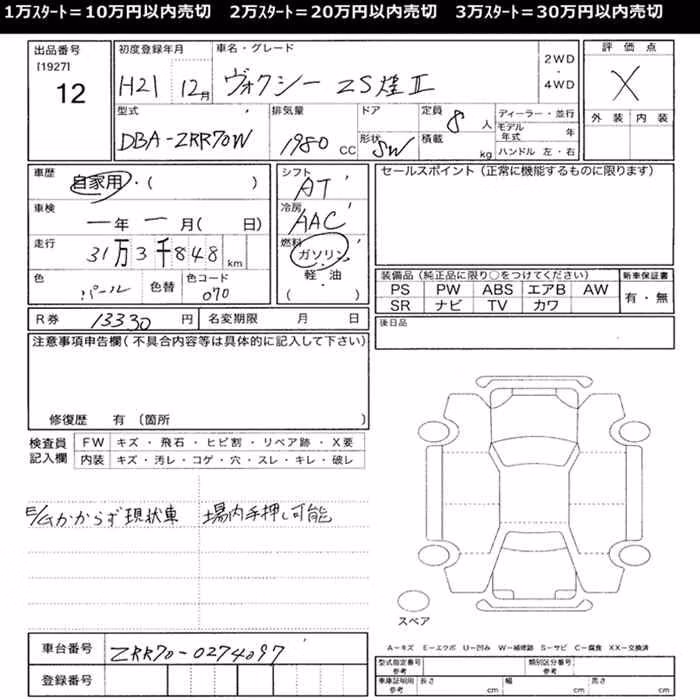 1万ｽﾀｰﾄ＝10万円以内売切　2万ｽﾀｰﾄ＝20万円以内売切　3万ｽﾀｰﾄ＝30万円以内売切
出品番号
[1927]
12
初度登録年月
H21 12月
車名・グレード
ヴォクシー ZS煌Ⅱ
2WD
・
4WD
評価点
X
外装 内装
型式
DBA-ZRR70W
排気量
1980 CC
ドア
形状 SW
定員
8 人
積載
kg
ディーラー・並行
モデル年式 年
ハンドル 左・右
車歴
自家用・( )
車検
一年 一月( 日)
走行
31万3千848km
色
パール
色替
色コード
070
シフト
AT
冷房
AAC
燃料
ガソリン
軽・油
( )
セールスポイント（正常に機能するものに限ります）
装備品（純正品に限り○をつけてください）
PS PW ABS エアB AW
SR ナビ TV カワ
新車保証書
有・無
R券 13330 円
名変期限 月 日
後日品
注意事項申告欄（不具合内容等は具体的に記入して下さい）
修復歴 有（箇所 ）
検査員
記入欄
FW キズ・飛石・ヒビ割・リペア跡・X要
内装 キズ・汚レ・コゲ・穴・スレ・キレ・破レ
E/Gかからず現状車 場内手押し可能
スペア
A－キズ E－エクボ U－凹み W－補修跡 S－サビ C－腐食 XX－交換済
車台番号 ZRR70-0274097
登録番号
型式指定番号
参考
類別区分番号
参考
車庫証明用
参考
長さ cm 幅 cm 高さ cm